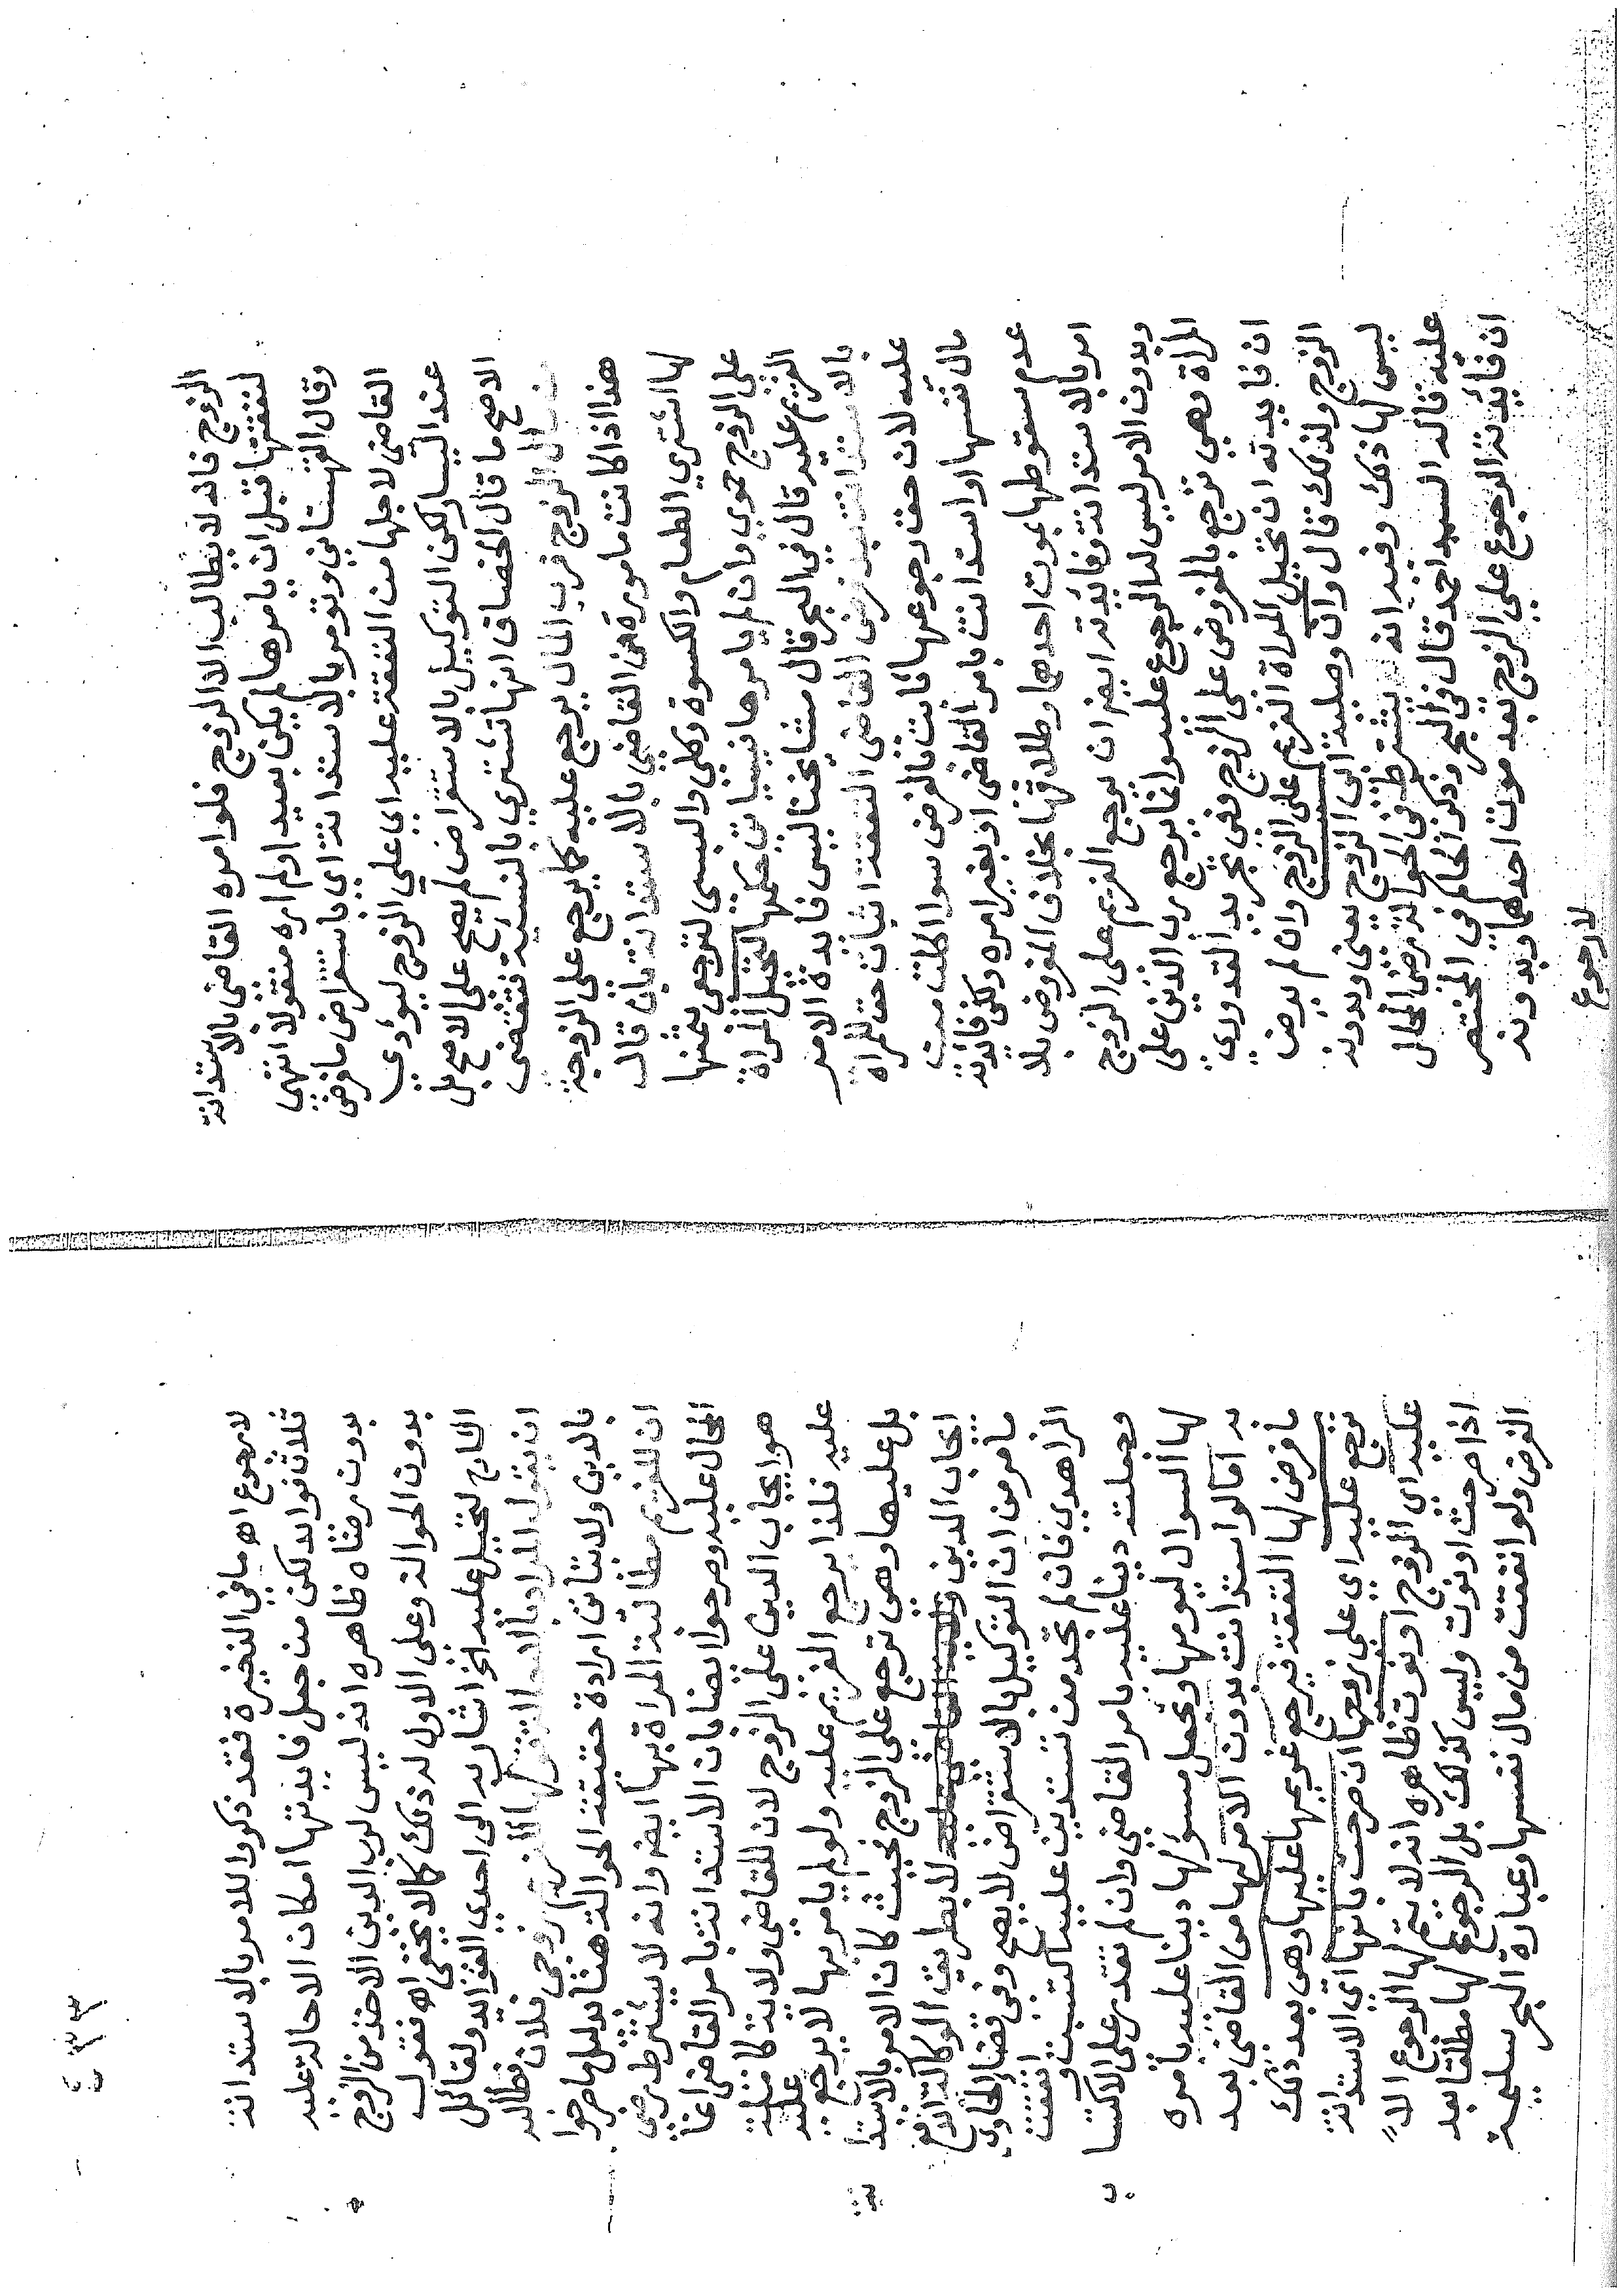 الزوج فانه لا يطالب الا الزوج فلو امره القاضى بالاستدانة
لنفقتها قبل ان يامرها لم يكن بعيد اولم اره منقولا انتهى
وقال القهستاني وتومر بالاستدانة اي باستقراض ما فرض
القاضى لاجلها من النفقة عليه اي على الزوج ليؤدي
عند اليسار لكن التوكيل بالاستقراض لم يصح على الاصح بل
الاصح ما قال الخصاف انها تشتري بالنسية لتقضى
من مال الزوج فرب المال يرجع عليه كما يرجع على الزوجة
هذا اذا كانت مامورة من القاضي بالاستدانة بان قال
لها اشتري الطعام والكسوة وكلى والبسى لترجعى بثمنها
على الزوج حموي وان لم يامرها نيبا تى حكمها لتحيل المراة
الغريم عليه قال في البحر قال مشايخنا ليس فايدة الامر
بالاستدانة بعد فرض القاضى النفقة اثبات حق للمراة
عليه لان حق رجوعها ثابت بالفرض سوا اكلت من
مال نفسها او استدانت بامر القاضى او بغير امره ولكن فائدته
عدم سقوطها بموت احدهما وطلاقها بخلاف المفروض بلا
امر بالاستدانة وفايدته ايضا ان يرجع الغريم على الزوج
وبدون الامر ليس له الرجوع عليه وانما يرجع رب الدين على
المراة وهي ترجع بالمفروض على الزوج ففي تجريد القدوري
ان فايدته ان تحيل المراة الغريم على الزوج وان لم يرض
الزوج ولذلك قال وان وصلية ابى الزوج يعنى وبدونه
ليس لها ذلك وفيه انه يشترط في الحوالة رضى المحال
عليه قاله السيد احمد قال في البحر وذكر الحاكم في المختصر
ان فايدته الرجوع على الزوج بعد موت احدهما وبدونه
لا رجوع
لا رجوع اه ما في الذخيرة فقد ذكروا للامر بالاستدانة
ثلاث فوائد لكن من جعل فايدتها امكان الاحالة عليه
بدون رضاه ظاهره انه ليس لرب الدين الاخذ من الزوج
بدون الحوالة وعلى الاول له ذلك كما لا يخفى اه فقول
الشارح لتحيل عليه الخ اشار به الى احدى الفوايد ولقائل
ان يقول المراد بالاحالة قولها للغريم زوجى فلان فطالبه
بالدين ولا يتاتى ارادة حقيقة الحوالة هنا بدليل ما صرحوا
ان للغريم مطالبة المراة بها ايضا وانه لا يشترط رضى
المحال عليه وصرحوا ايضا بان الاستدانة بامر القاضى انما
هو ايجاب الدين على الزوج لان للقاضي ولاية كاملة
عليه فلذا يرجع الغريم عليه ولو لم يامر بها لا يرجع عليه
بل عليها وهى ترجع على الزوج فحيث كان الامر بالاستدا
نة
ايجاب الدين لا بطريق الوكالة اندفع
ما مر من ان التوكيل بالاستقراض لا يصح وفى قضاء الحاوي
الزاهدي فان لم تجد من تستدين عليه اكتسبت و انفقت
وجعلت دينا عليه بامر القاضي وان لم تقدر على الاكتسا
ب
لها السوال ليومها وتجعل مسؤلها دينا عليه بامره
بد اما لو استدانت بدون الامر لها من القاضى بعد
ما فرض لها النفقة فيرجع غريمها عليها وهى بعد ذلك
ترجع عليه اي على زوجها ان صرحت بانها اي الاستدانة
عليه اي الزوج او نوت ظاهره انه لا يتم لها الرجوع الا
اذا صرحت او نوت وليس كذلك بل الرجوع لها مطلقا بعد
الفرض ولو انفقت من مال نفسها وعبارة البحر سليمة